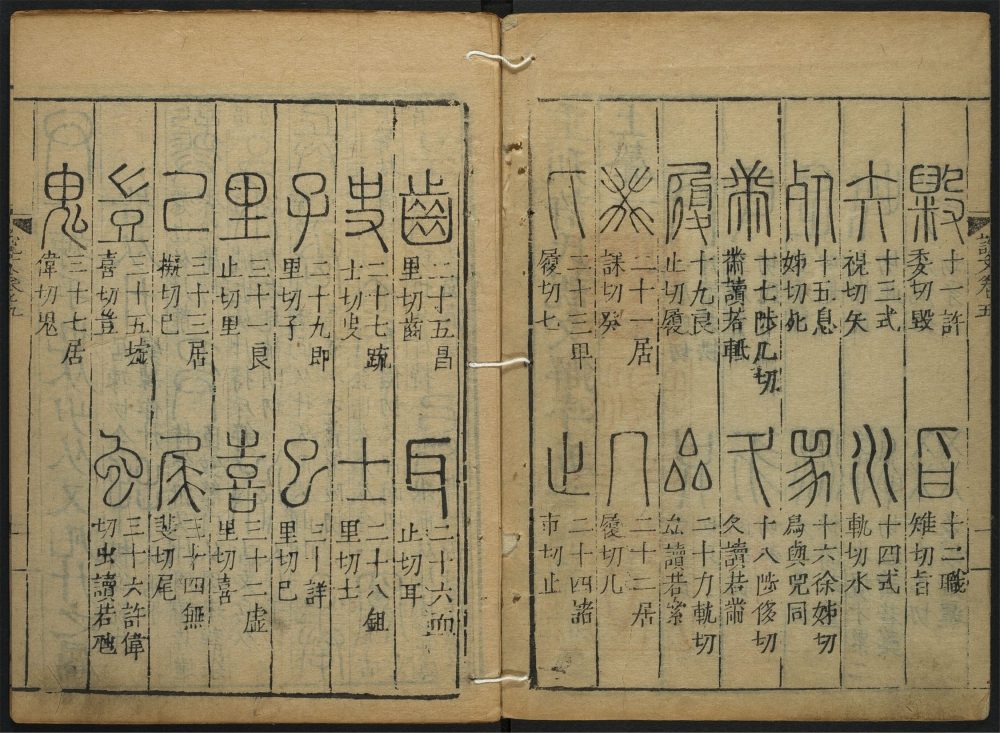 毇
十一許
委切毀
旨
十二職
雉切旨
矢
十三式
視切矢
水
十四式
軌切水
死
十五息
姊切死
十六徐姊切
爲與兕同
黹
十七陟几切
黹讀若
夂
十八陟侈切
夂讀若黹
履
十九良
止切履
厽
二十力軌切
厽讀若絫
癸
二十一居
誄切癸
几
二十二居
履切几
匕
二十三卑
履切七
止
二十四諸
市切止
齒
二十五昌
里切齒
耳
二十六而
止切耳
史
二十七疏
士切史
士
二十八鉏
里切士
子
二十九即
里切子
巳
三十詳
里切巳
里
三十一良
止切里
喜
三十二虛
里切喜
己
三十三居
擬切己
尾
三十四無
斐切尾
豈
三十五墟
喜切豈
虫
三十六許偉
切虫讀若虺
鬼
三十七居
偉切鬼